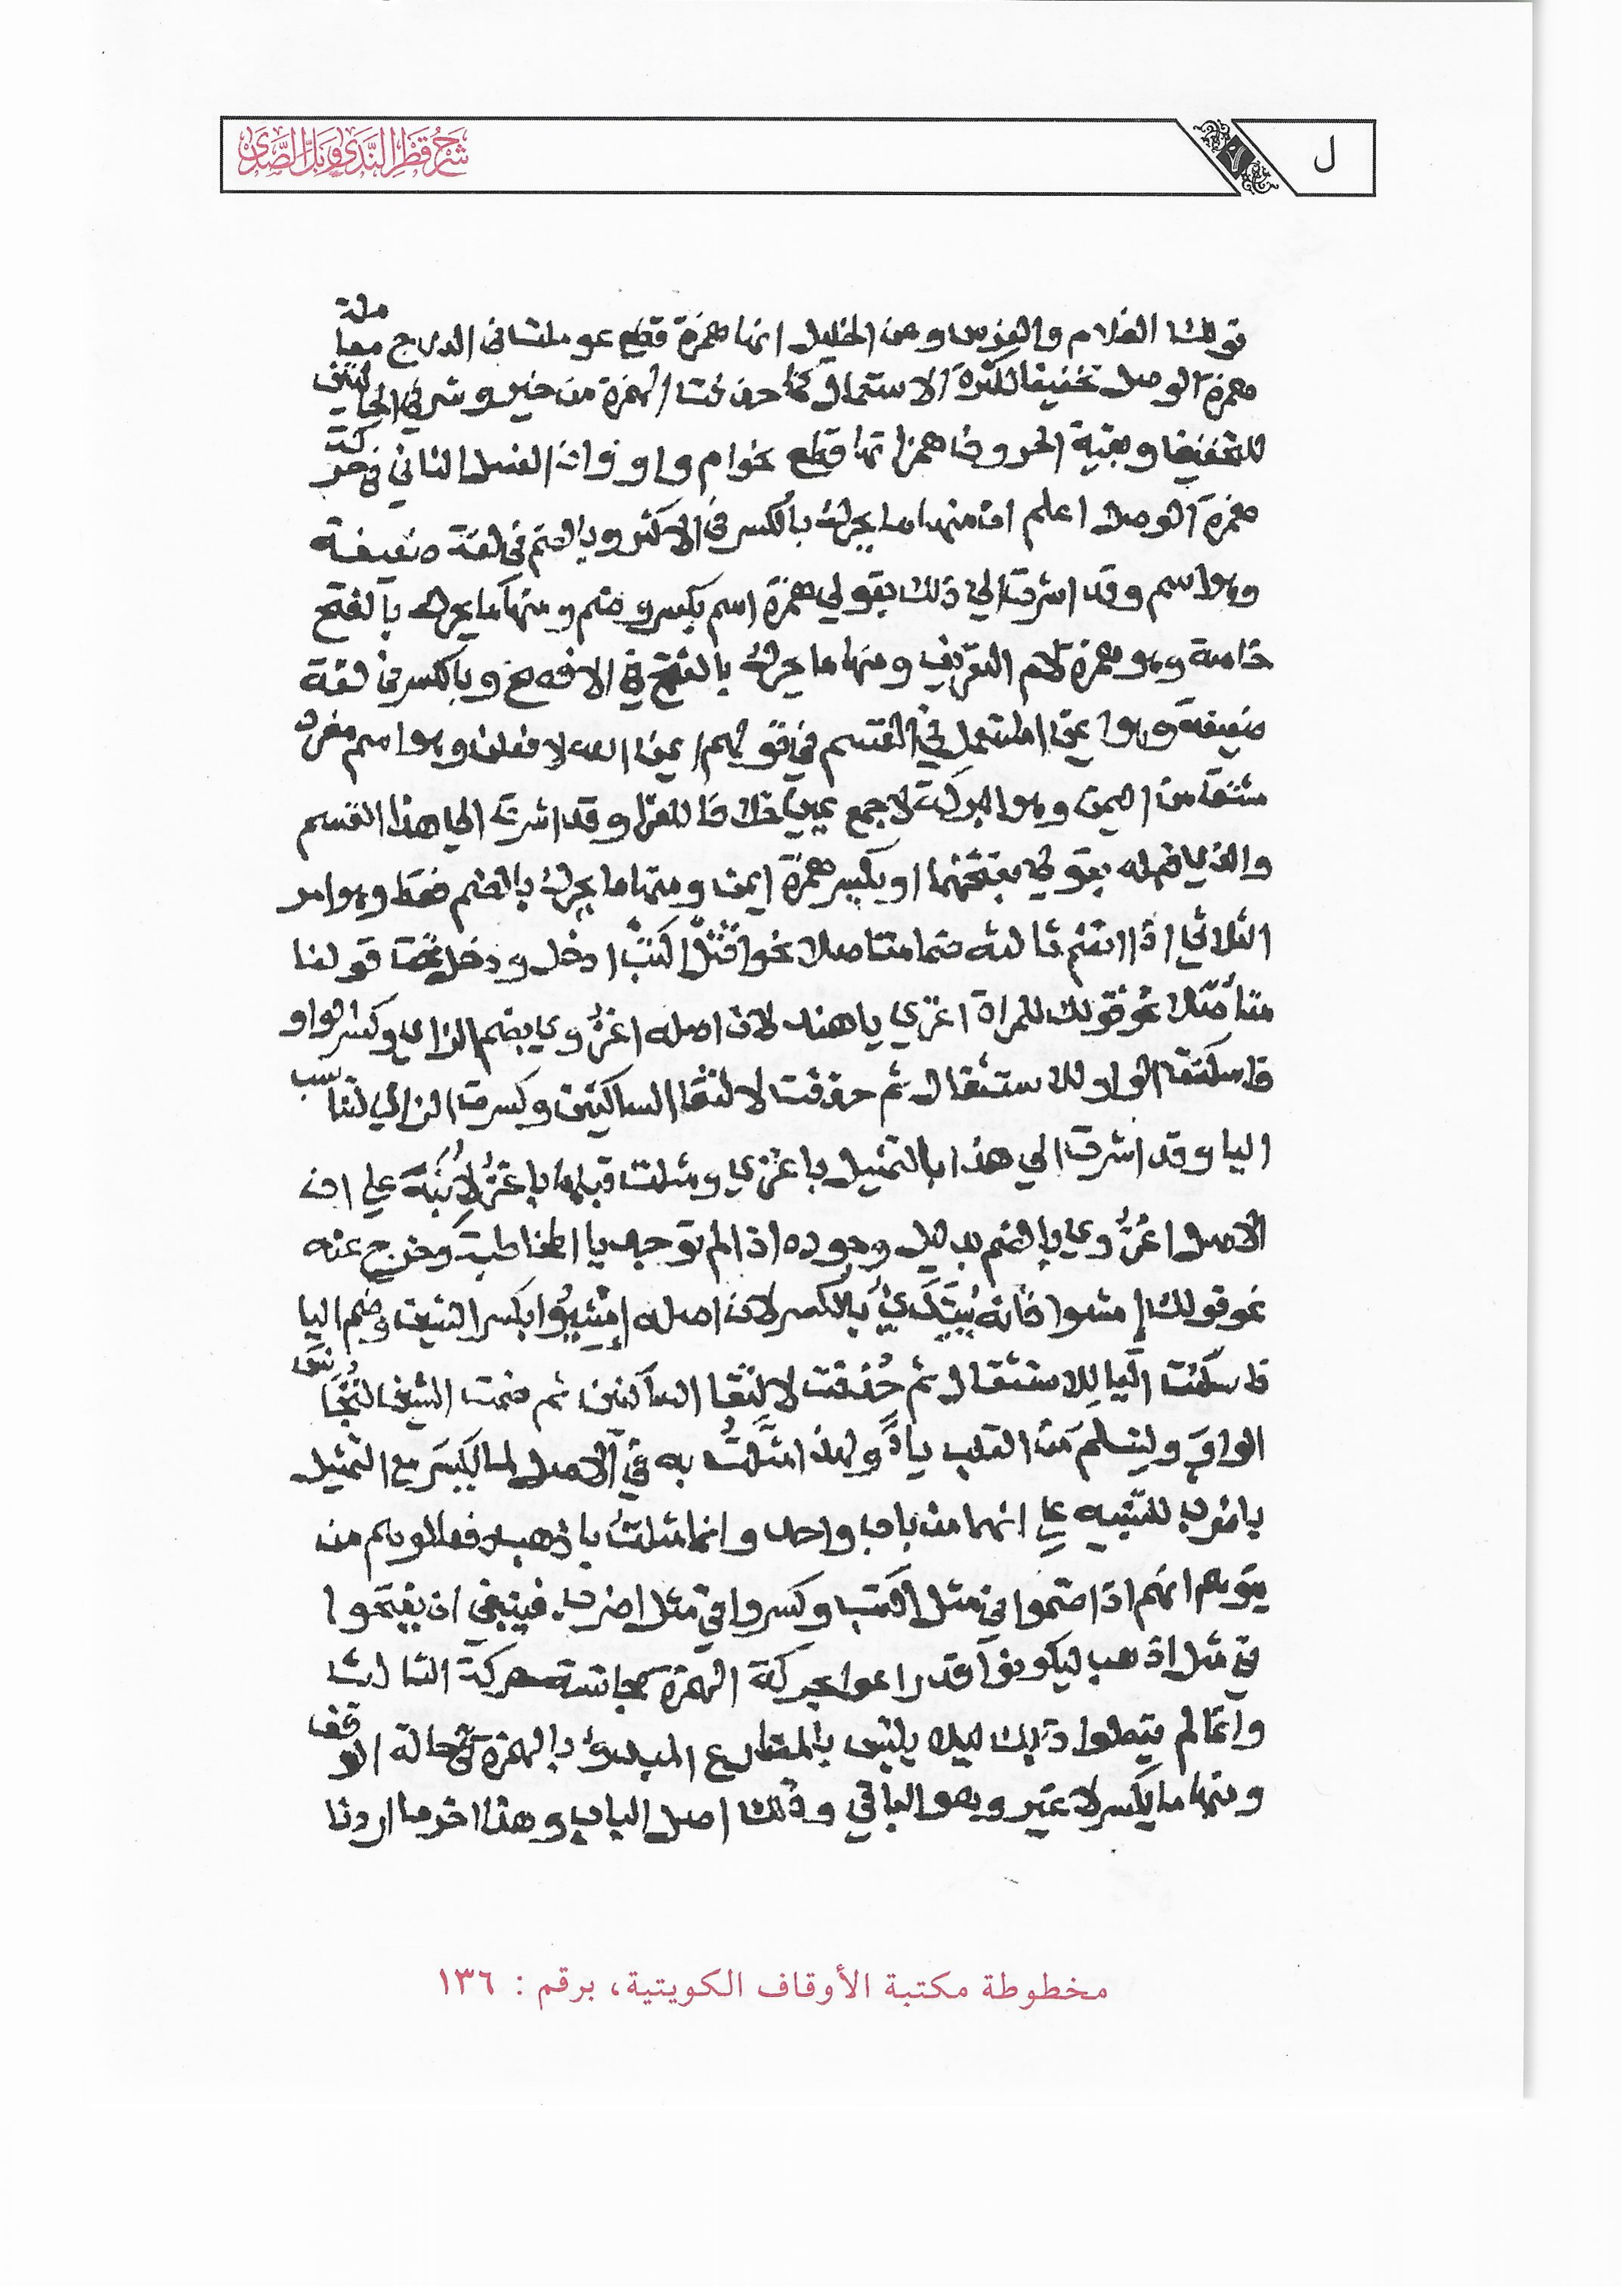 ل
شرح قطر الندى وبل الصدى
قولك الغلام والفرس وعن الخليل انها همزة قطع عوملت في الدرج معاملة
همزة الوصل تخفيفا لكثرة الاستعمال كما حذفت الهمزة من خير وشر في الحالتين
للتخفيف وبقية الحروف همزاتها قطع نحو ام واو وان الفصل الثاني في حركة
همزة الوصل اعلم ان منها ما يحرك بالكسر في الاكثر وبالضم في لغة ضعيفة
وهو اسم وقد اشرت الي ذلك بقولي همزة اسم بكسر وضم ومنها ما يحرك بالفتح
خاصة وهو همزة لام التعريف ومنها ما يحرك بالفتح في الافصح وبالكسر في لغة
ضعيفة وهو ايمن المستعمل في القسم في قولهم ايمن الله لافعلن وهو اسم مفرد
مشتق من اليمن وهو البركة لا جمع يمين خلافا للفرا وقد اشرت الي هذا القسم
والذي قبله بقولي بفتحهما او بكسر همزة ايمن ومنها ما يحرك بالضم فقط وهو امر
الثلاثي اذا انضم ثالثه ضما متاصلا نحو اقتل اكتب ادخل ودخل تحت قولنا
متأصلا نحو قولك للمراة اغزي يا هند لان اصله اغزوي بضم الزاي وكسر الواو
فاسكنت الواو للاستثقال ثم حذفت لالتقا الساكنين وكسرت الزاي لتناسب
اليا وقد اشرت الي هذا بالتمثيل باغزي ومثلت قبلها باغز لانبه علي ان
الاصل اغزوي بالضم بدليل وجوده اذا لم توجد يا المخاطبة وخرج عنه
نحو قولك امشوا فانه يبتدئ بالكسر لان اصله امشيوا بكسر الشين وضم اليا
فاسكنت اليا للاستثقال ثم حذفت لالتقا الساكنين ثم ضمت الشين لتجانس
الواو ولتسلم من القلب ياء ولهذا مثلت به في الاصل لما يكسر مع التمثيل
باضرب للتنبيه علي انهما من باب واحد وانما مثلت باذهب دفعا لوهم من
يتوهم انهم اذا ضموا في مثل اكتب وكسروا في مثل اضرب فينبغي ان يفتحوا
في مثل اذهب ليكونوا قد راعوا بحركة الهمزة مجانسة حركة الثالث
وانما لم يفعلوا ذلك ليلا يلتبس بالمضارع المبدوء بالهمزة في حالة الوقف
ومنها ما يكسر لا غير وهو الباقي وذلك اصل الباب وهذا اخر ما اردنا
مخطوطة مكتبة الأوقاف الكويتية، برقم : ١٣٦